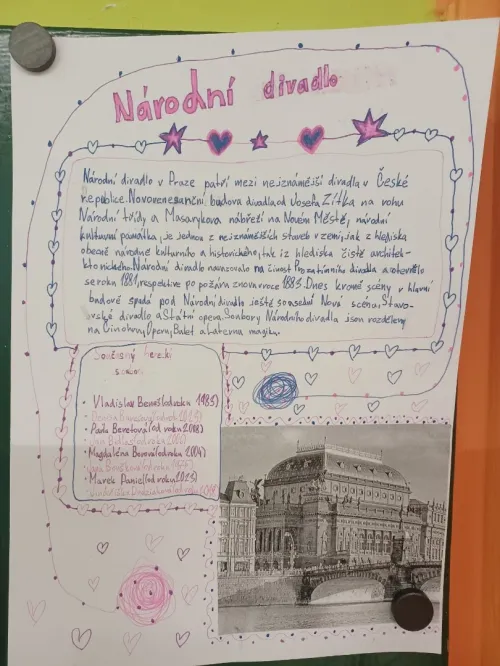 Národní divadlo
Národní divadlo v Praze patří mezi nejznámější divadla v České
republice. Novorenesanční budova divadla od Josefa Zítka na rohu
Národní třídy a Masarykova nábřeží na Novém Městě, národní
kulturní památka, je jednou z nejznámějších staveb v zemi, jak z hlediska
obecně národně kulturního a historického, tak iz hlediska čistě architek-
tonického. Národní divadlo navazovalo na činost Prozatimního divadla a otevřelo
se roku 1881, respektive po požáru znova roce 1883. Dnes kromě scény v hlavní
budově spadá pod Národní divadlo ještě sousední Nová scéna, Stavo-
vské divadlo a Státní opera. Soubory Národního divadla jsou rozděleny
na Činohru, Operu, Balet a Laterna magiku.
Současný herecký
soubor
• Vladislav Beneš (od roku 1983)
• Pavla Beretová (od roku 2008)
• Magdaléna Borová (od roku 2004)
• Marek Daniel (od roku 2023)